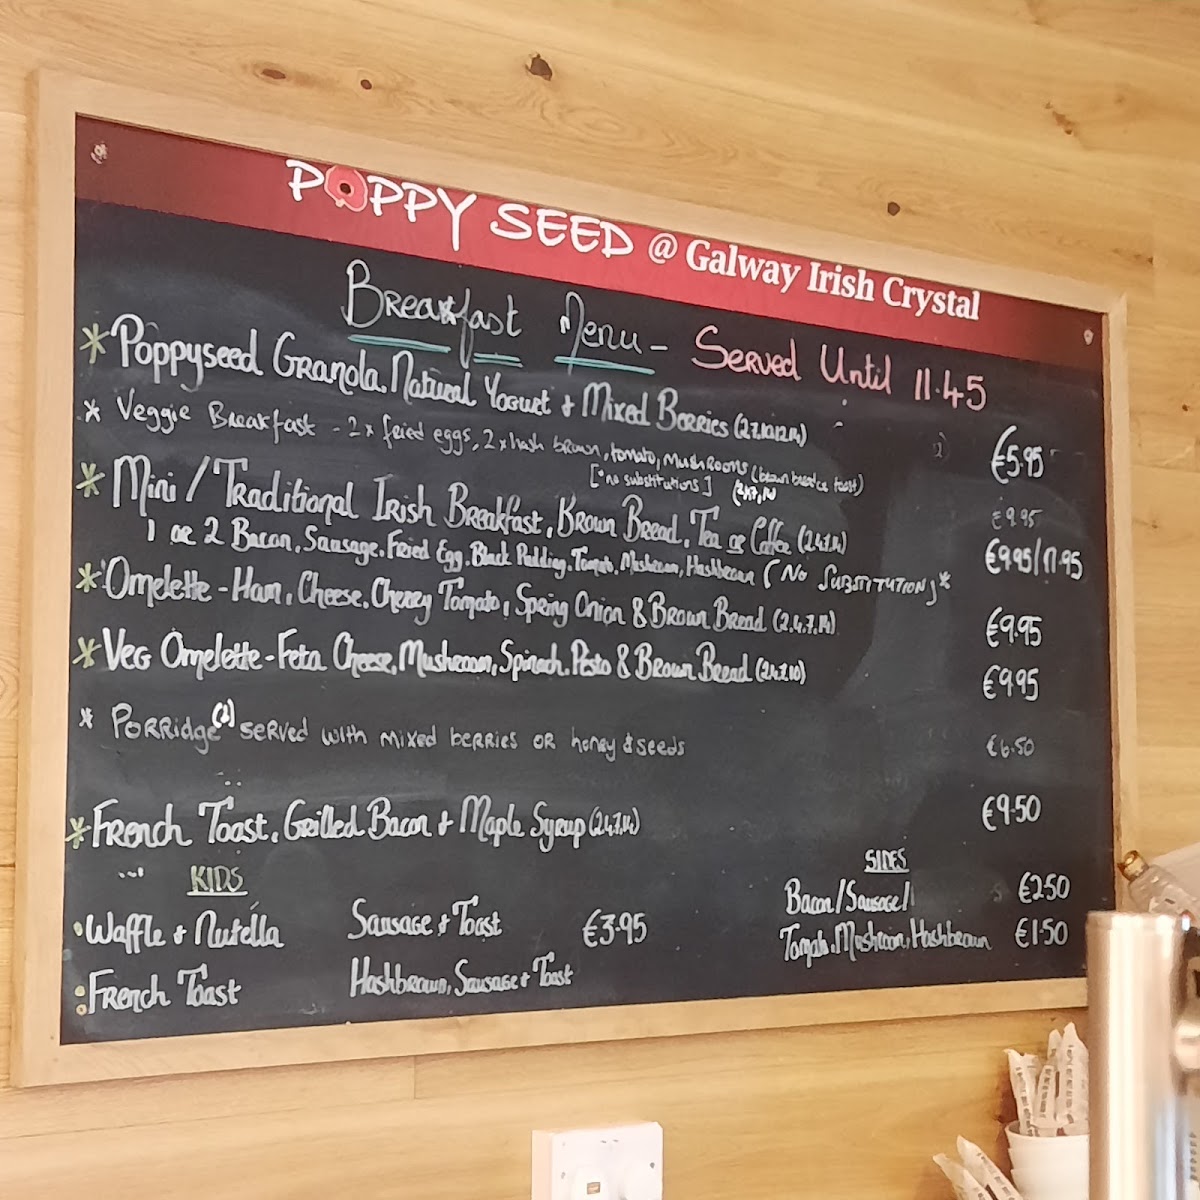 POPPY SEED @ Galway Irish Crystal
Breakfast Menu - Served Until 11.45
* Poppyseed Granola, Natural Yogurt & Mixed Berries €5.95
* Veggie Breakfast - 2x fried eggs, 2x hash brown, tomato, mushrooms €9.95
[*no substitutions]
* Mini / Traditional Irish Breakfast, Brown Bread, Tea or Coffee €9.95/11.95
1 or 2 Bacon, Sausage, Fried Egg, Black Pudding, Tomato, Mushroom, Hashbrown (NO SUBSTITUTION)*
* Omelette - Ham, Cheese, Cherry Tomato, Spring Onion & Brown Bread (2.4.7.14) €9.95
* Veg Omelette - Feta Cheese, Mushroom, Spinach, Pesto & Brown Bread €9.95
* Porridge served with mixed berries or honey & seeds €6.50
* French Toast, Grilled Bacon & Maple Syrup €9.50
KIDS
Waffle & Nutella Sausage & Toast €3.95
French Toast Hashbrown, Sausage & Toast
SIDES
Bacon/Sausage/ €2.50
Tomato, Mushroom, Hashbrown €1.50